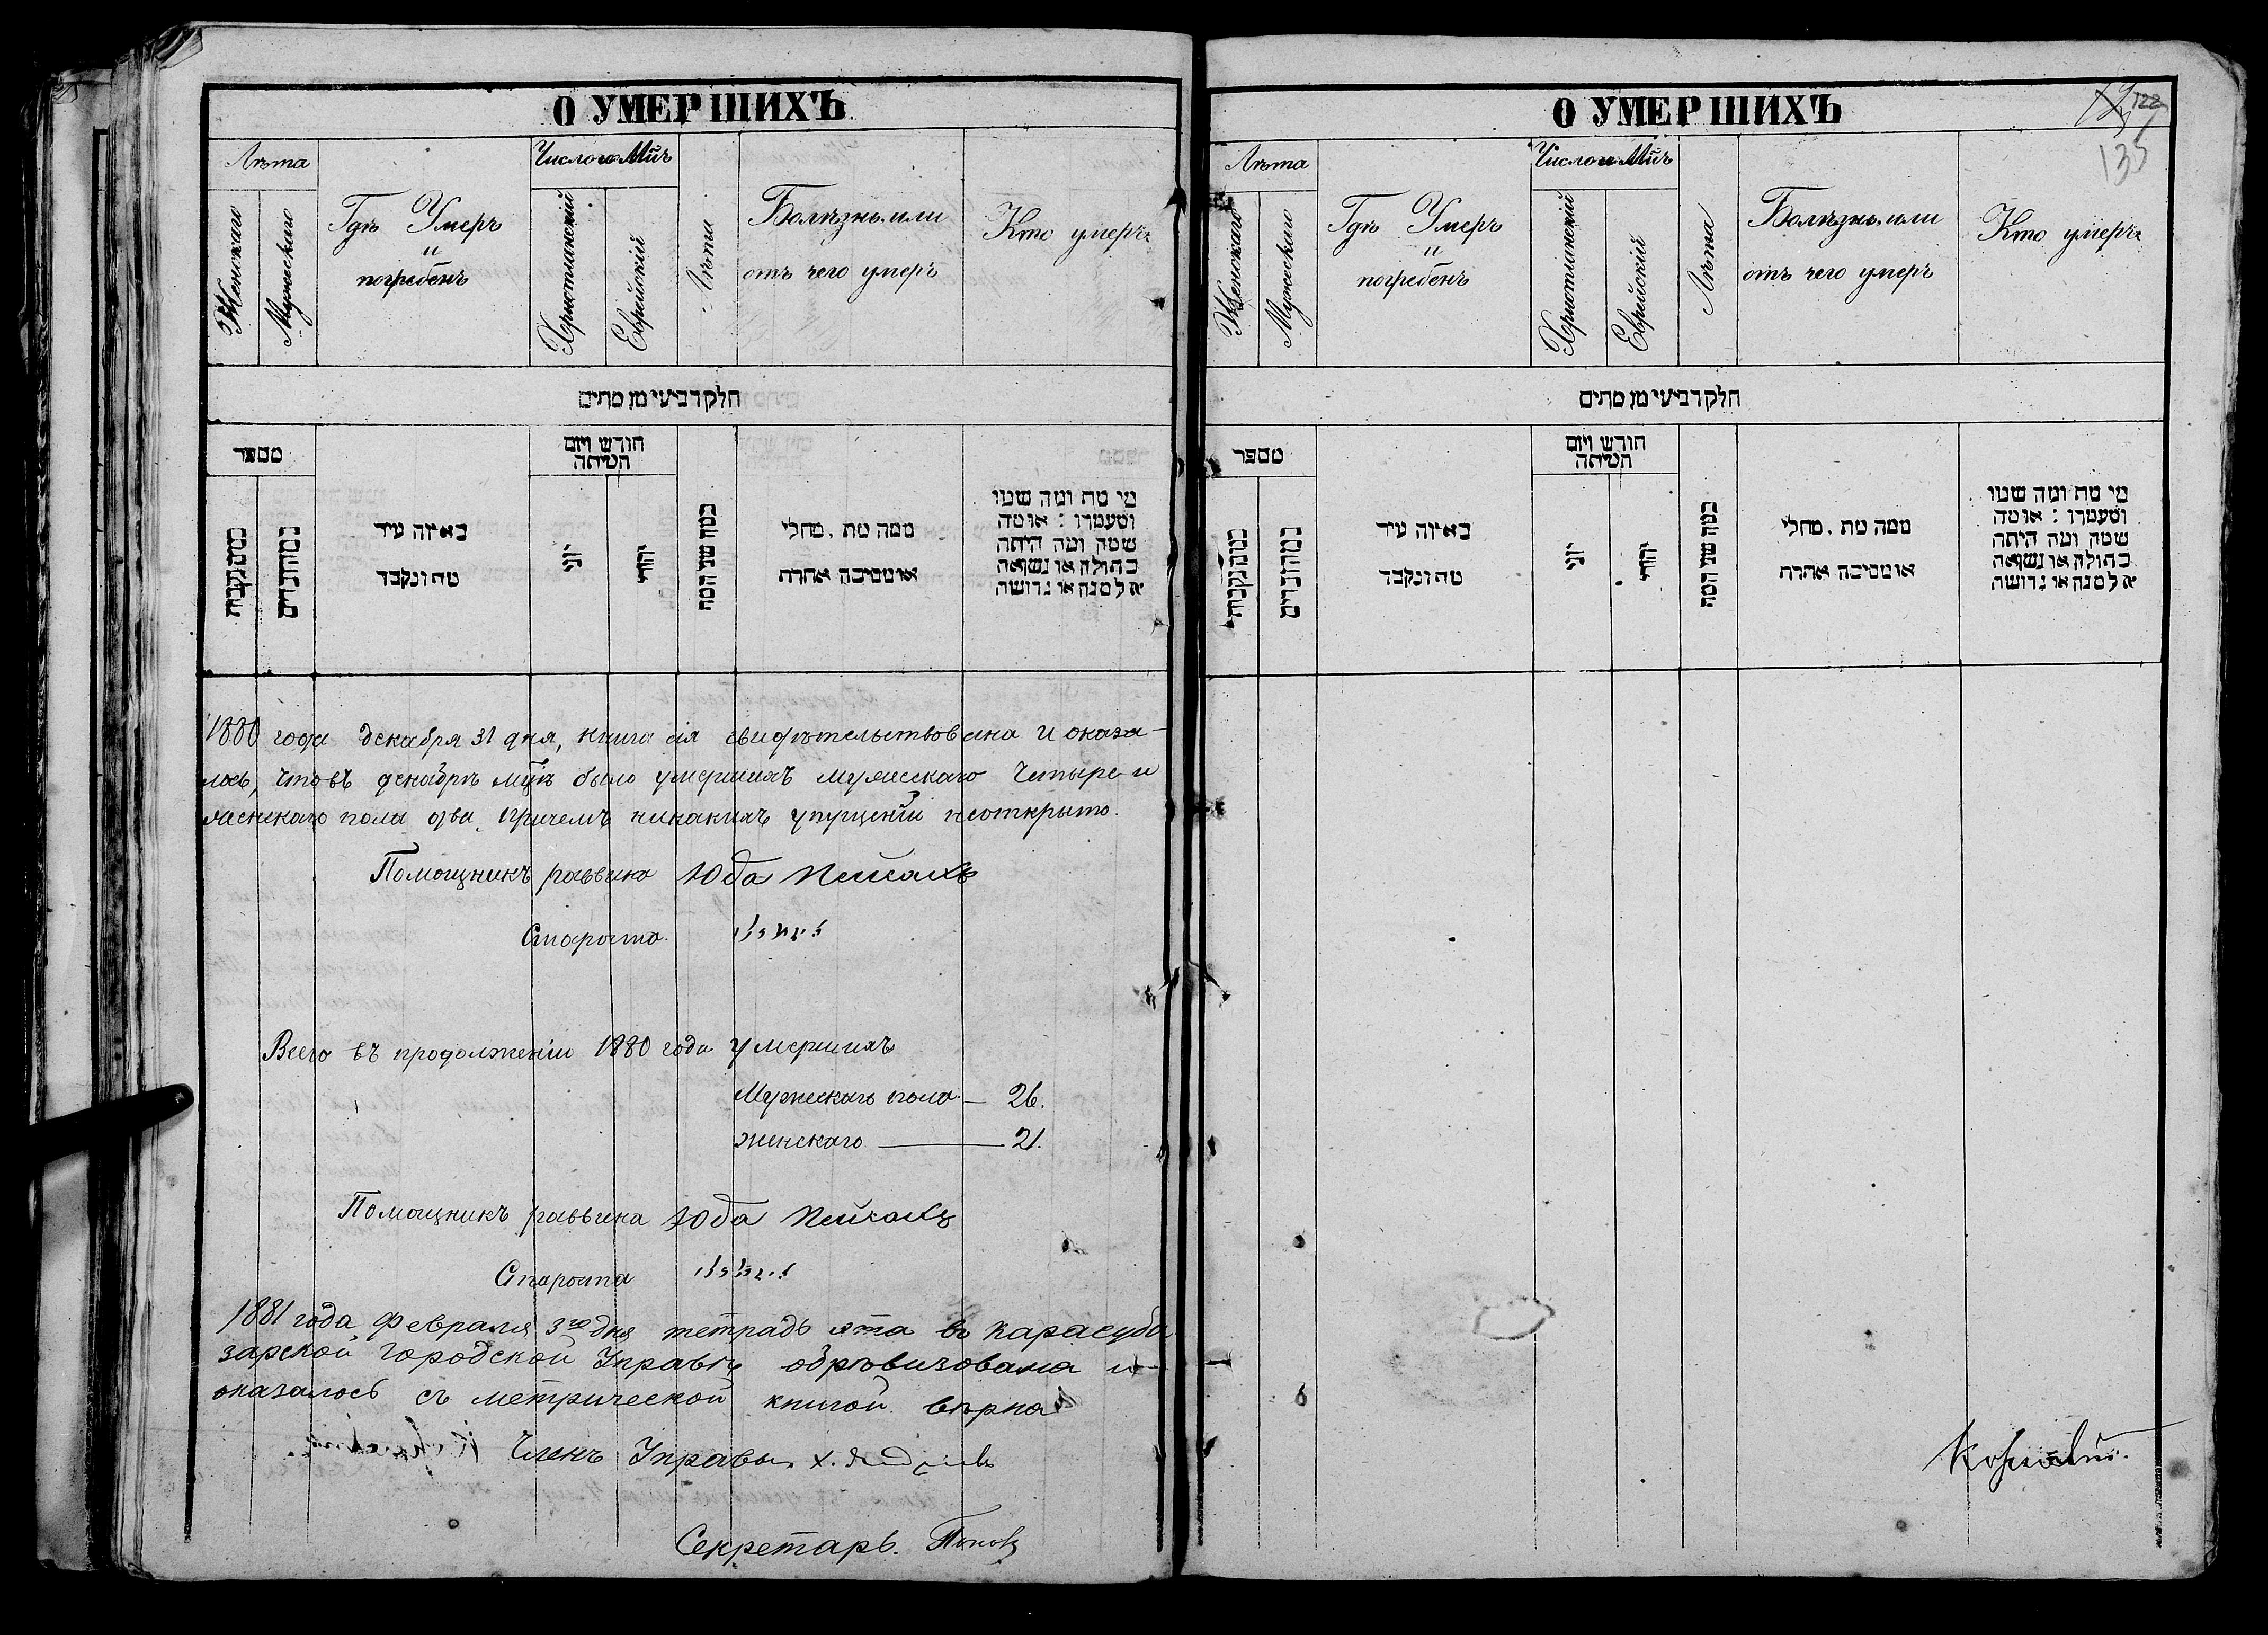 О УМЕРШИХЪ
Лѣта
Женскаго
Мужескаго
Гдѣ Умеръ
и
погребенъ
Число и Мц҃ъ
Христіанскій
Еврейскій
Лѣта
Болѣзнь или
отъ чего умеръ
Кто умеръ
חלק רביעי מן מתים
מספר
באיזה עיר
מת ונקבר
חודש ויום
המיתה
יוני
יהודי
ממה מת . מחלי
או מסיבה אחרת
מי מת ומה שמו
ומעמדו : או מה
שמה ומה היתה
בתולה או נשואה
אלמנה או גרושה
1880 года декабря 31 дня, книга сія свидѣтельствована и оказа-
лось, что въ декабрѣ мц҃ѣ было умершихъ мужескаго четыре и
женскаго пола два, причемъ никакихъ упущеній неоткрыто.
Помощникъ раввина Юда Пейсахъ
Староста
Всего въ продолженіи 1880 года умершихъ
Мужескаго пола — 26.
женскаго — 21.
Помощникъ раввина Юда Пейсахъ
Староста
1881 года февраля 3го дня тетрадь эта въ Карасуба
зарской Городской Управѣ обревизована и
оказалось съ метрической книгой вѣрна
Членъ Управы Х.
Секретарь. Поповъ
О УМЕРШИХЪ
122
135
Лѣта
Женскаго
Мужескаго
Гдѣ Умеръ
и
погребенъ
Число и Мц҃ъ
Христіанскій
Еврейскій
Лѣта
Болѣзнь или
отъ чего умеръ
Кто умеръ
חלק רביעי מן מתים
מספר
באיזה עיר
מת ונקבר
חודש ויום
המיתה
יוני
יהודי
ממה מת . מחלי
או מסיבה אחרת
מי מת ומה שמו
ומעמדו : או מה
שמה ומה היתה
בתולה או נשואה
אלמנה או גרושה